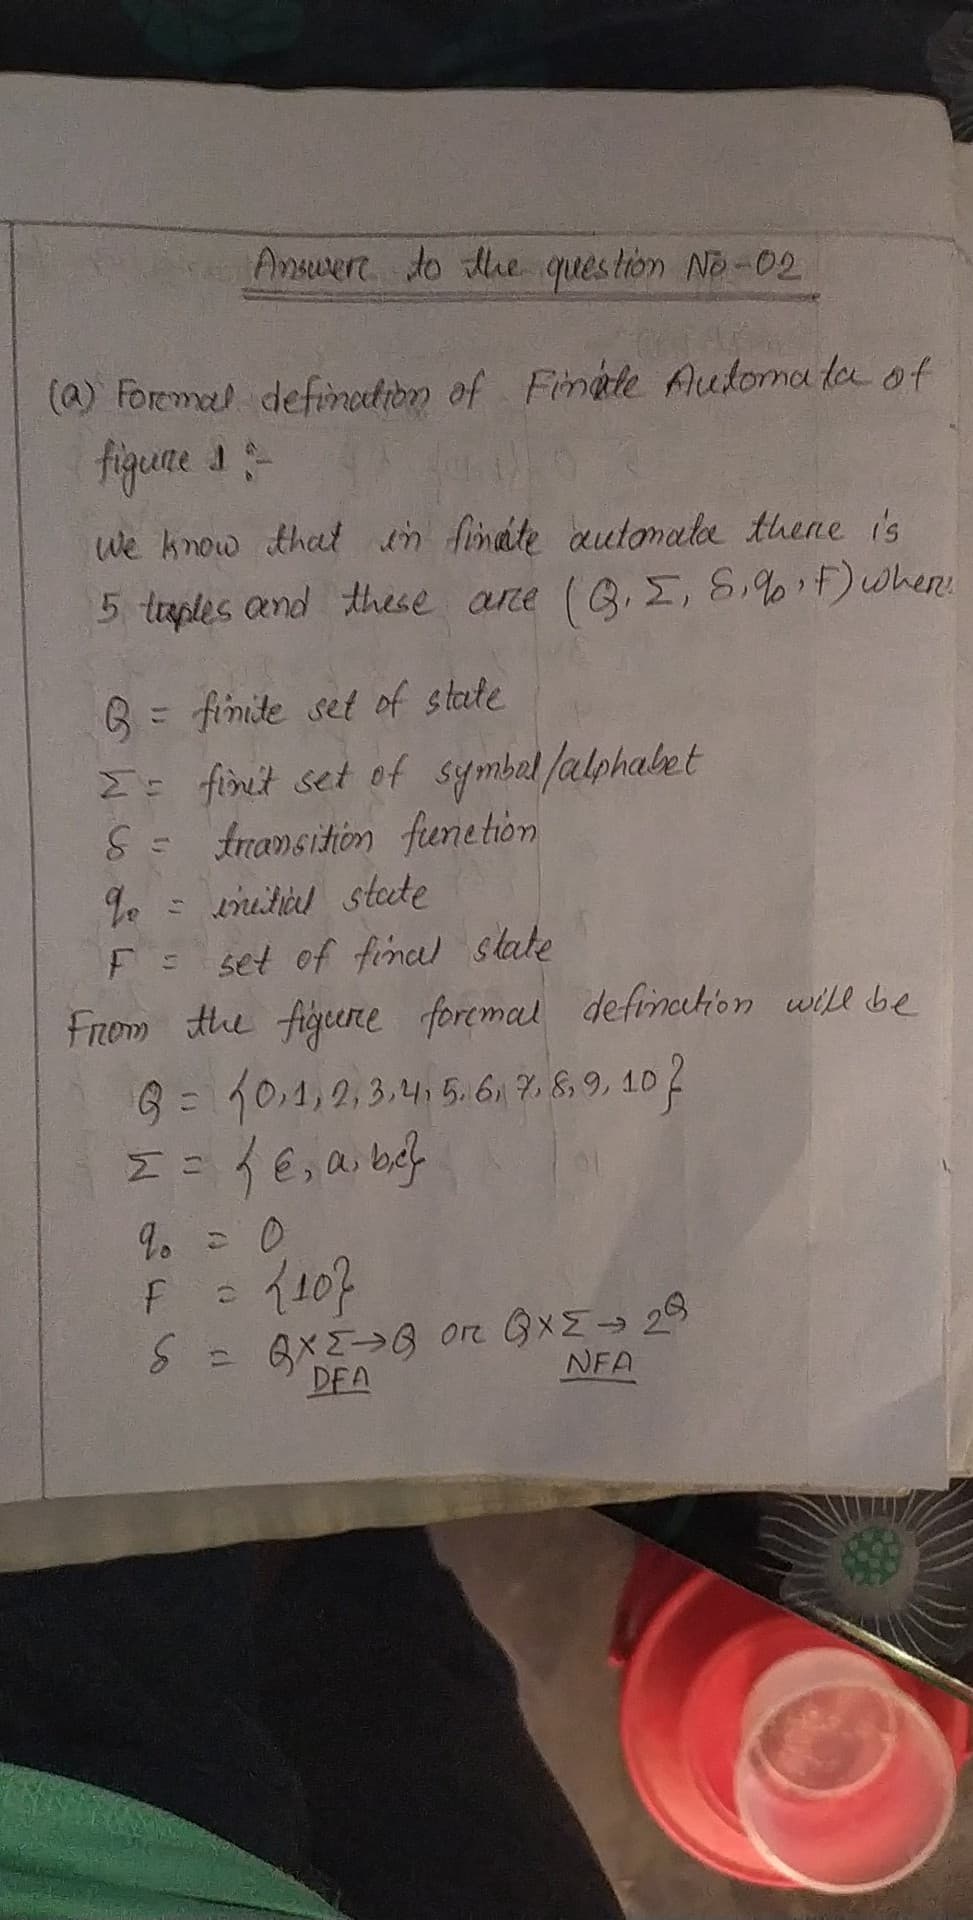 Answere to the question No-02
(a) Foremal defination of Finite Automata of
figure 1 :-
We know that in finite automata there is
5 tuples and these are (Q, Σ, δ, q0, F) where
Q = finite set of state
Σ = finit set of symbol/alphabet
δ = transition function
q0 = initial state
F = set of final state
From the figure foremal defination will be
Q = {0,1,2,3,4,5,6,7,8,9,10}
Σ = {ϵ, a, b,c}
q0 = 0
F = {10}
δ = Q×Σ→Q or Q×Σ→2^Q
DFA NFA